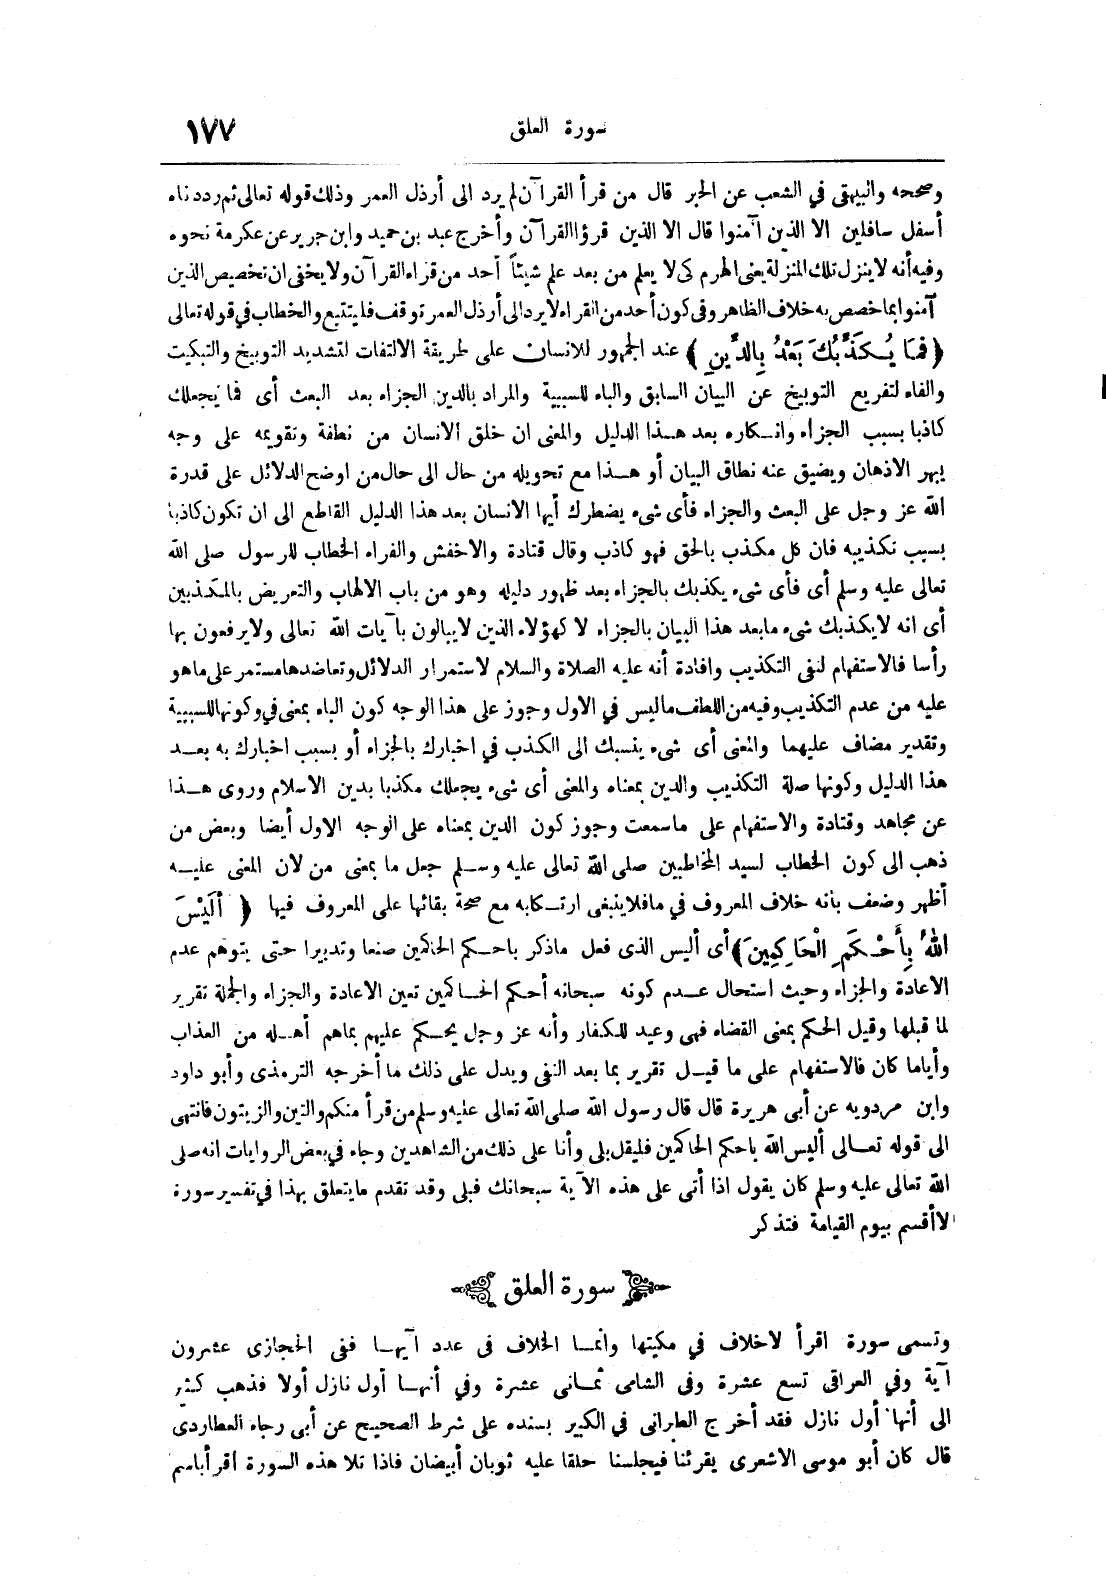 سورة العلق ١٧٧
وصححه والبيهقي في الشعب عن الحبر قال من قرأ القرآن لم يرد الى أرذل العمر وذلك قوله تعالى ثم رددناه
أسفل سافلين الا الذين آمنوا قال الا الذين قرؤا القرآن وأخرج عبد بن حميد وابن جرير عن عكرمة نحوه
وفيه أنه لا ينزل تلك المنزلة يعني الهرم كى لا يعلم من بعد علم شيئاً أحد من قراء القرآن ولا يخفى ان تخصيص الذين
آمنوا بما خصص به خلاف الظاهر وفى كون أحد من القراء لا يرد الى أرذل العمر توقف فليتتبع والخطاب في قوله تعالى
﴿ فَمَا يُكَذِّبُكَ بَعْدُ بِالدِّينِ ﴾ عند الجمهور للانسان على طريقة الالتفات لتشديد التوبيخ والتبكيت
والفاء لتفريع التوبيخ عن البيان السابق والباء للسببية والمراد بالدين الجزاء بعد البعث أى فما يجعلك
كاذبا بسبب الجزاء وانكاره بعد هذا الدليل والمعنى ان خلق الانسان من نطفة وتقويمه على وجه
يبهر الاذهان ويضيق عنه نطاق البيان أو هذا مع تحويله من حال الى حال من اوضح الدلائل على قدرة
الله عز وجل على البعث والجزاء فأى شيء يضطرك أيها الانسان بعد هذا الدليل القاطع الى ان تكون كاذبا
بسبب تكذيبه فان كل مكذب بالحق فهو كاذب وقال قتادة والاخفش والفراء الخطاب للرسول صلى الله
تعالى عليه وسلم أى فأى شيء يكذبك بالجزاء بعد ظهور دليله وهو من باب الالهاب والتعريض بالمكذبين
أى انه لا يكذبك شيء ما بعد هذا البيان بالجزاء لا كهؤلاء الذين لا يبالون بآيات الله تعالى ولا يرفعون بها
رأسا فالاستفهام لنفي التكذيب وافادة أنه عليه الصلاة والسلام لاستمرار الدلائل وتعاضدها مستمر على ما هو
عليه من عدم التكذيب وفيه من اللطف ما ليس في الاول وجوز على هذا الوجه كون الباء بمعنى في وكونها للسببية
وتقدير مضاف عليهما والمعنى أى شيء ينسبك الى الكذب في اخبارك بالجزاء أو بسبب اخبارك به بعد
هذا الدليل وكونها صلة التكذيب والدين بمعناه والمعنى أى شيء يجعلك مكذبا بدين الاسلام وروى هذا
عن مجاهد وقتادة والاستفهام على ما سمعت وجوز كون الدين بمعناه على الوجه الاول أيضا وبعض من
ذهب الى كون الخطاب لسيد المخاطبين صلى الله تعالى عليه وسلم جعل ما بمعنى من لان المعنى عليه
أظهر وضعف بأنه خلاف المعروف في ما فلا ينبغى ارتكابه مع صحة بقائها على المعروف فيها ﴿ أَلَيْسَ
اللهُ بِأَحْكَمِ الْحَاكِمِينَ ﴾ أى أليس الذى فعل ما ذكر باحكم الحاكمين صنعا وتدبيرا حتى يتوهم عدم
الاعادة والجزاء وحيث استحال عدم كونه سبحانه أحكم الحاكمين تعين الاعادة والجزاء والجملة تقرير
لما قبلها وقيل الحكم بمعنى القضاء فهى وعيد للكفار وأنه عز وجل يحكم عليهم بما هم أهله من العذاب
وأياما كان فالاستفهام على ما قيل تقرير بما بعد النفى ويدل على ذلك ما أخرجه الترمذى وأبو داود
وابن مردويه عن أبى هريرة قال قال رسول الله صلى الله تعالى عليه وسلم من قرأ منكم والتين والزيتون فانتهى
الى قوله تعالى أليس الله باحكم الحاكمين فليقل بلى وأنا على ذلك من الشاهدين وجاء في بعض الروايات انه صلى
الله تعالى عليه وسلم كان يقول اذا أتى على هذه الآية سبحانك فبلى وقد تقدم ما يتعلق بهذا في تفسير سورة
لا أقسم بيوم القيامة فتذكر
سورة العلق
وتسمى سورة اقرأ لا خلاف في مكيتها وانما الخلاف فى عدد آيها ففى الحجازى عشرون
آية وفي العراقى تسع عشرة وفى الشامى ثمانى عشرة وفي أنها أول نازل أولا فذهب كثير
الى أنها أول نازل فقد أخرج الطبرانى في الكبير بسنده على شرط الصحيح عن أبى رجاء العطاردى
قال كان أبو موسى الاشعرى يقرئنا فيجلسنا حلقا عليه ثوبان أبيضان فاذا تلا هذه السورة اقرأ باسم